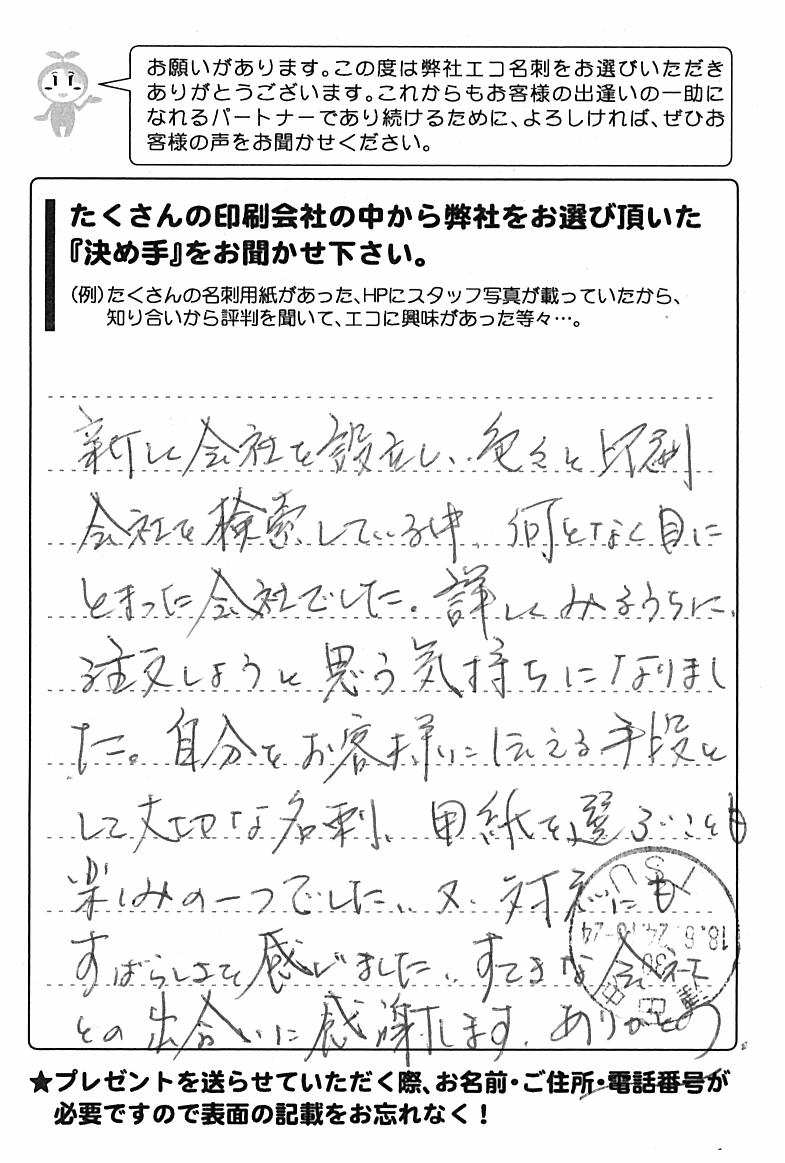 お願いがあります。この度は弊社エコ名刺をお選びいただき
ありがとうございます。これからもお客様の出逢いの一助に
なれるパートナーであり続けるために、よろしければ、ぜひお
客様の声をお聞かせください。
たくさんの印刷会社の中から弊社をお選び頂いた
『決め手』をお聞かせ下さい。
(例)たくさんの名刺用紙があった、HPにスタッフ写真が載っていたから、
知り合いから評判を聞いて、エコに興味があった等々…。
新しく会社を設立し、色々と印刷
会社を検索している中、何となく目に
とまった会社でした。詳しくみるうちに、
注文しようと思う気持ちになりまし
た。自分をお客様に伝える手段と
して大切な名刺、用紙を選ぶことも
楽しみの一つでした。又、対応にも
すばらしさを感じました。すてきな会社
との出合いに感謝します。ありがとう
18.6.24
★プレゼントを送らせていただく際、お名前・ご住所・電話番号が
必要ですので表面の記載をお忘れなく!